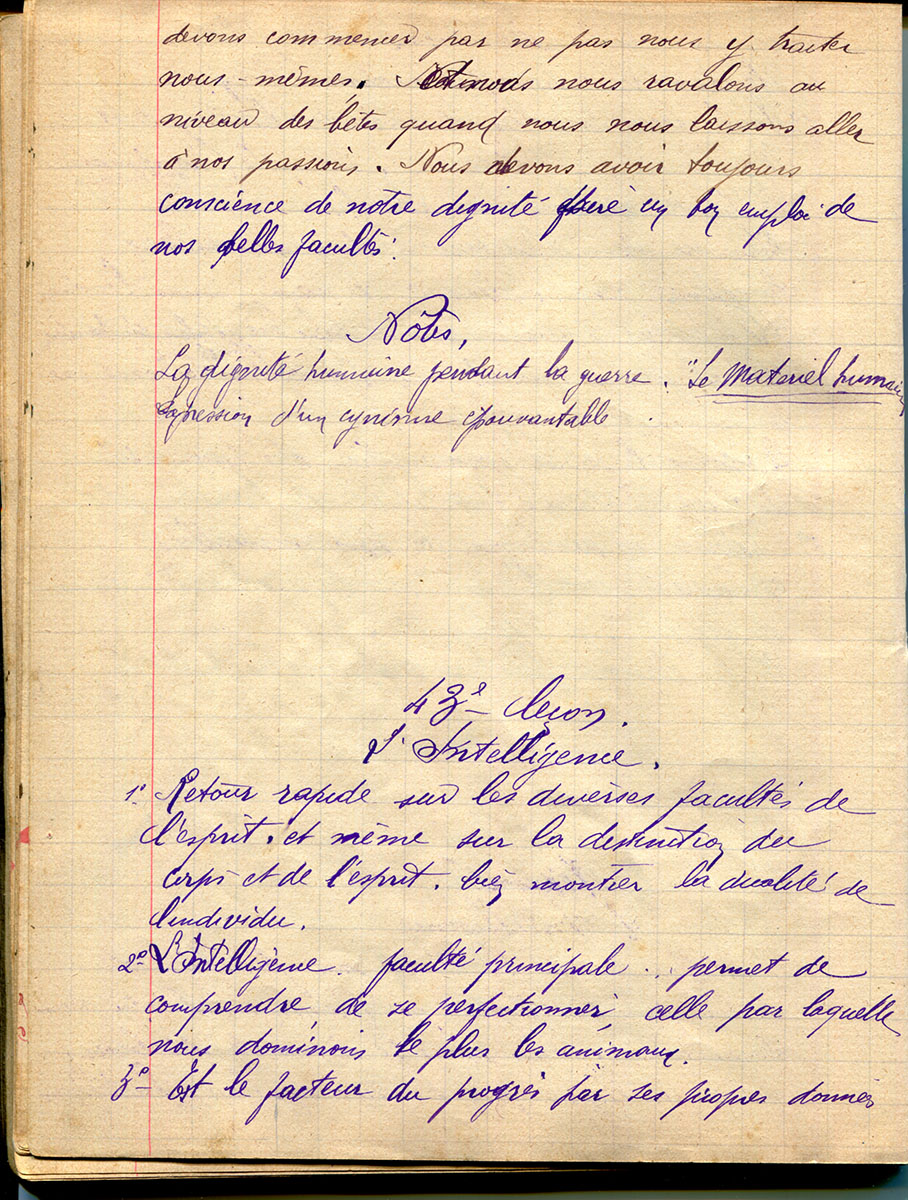 devons commencer par ne pas nous y traiter
nous-mêmes. nous ravalons au
niveau des bêtes quand nous nous laissons aller
à nos passions. Nous devons avoir toujours
conscience de notre dignité un bon emploi de
nos belles facultés.
Notes,
La dignité humaine pendant la guerre. "Le Matériel humain
Expression d'un cynisme épouvantable
43e leçon.
L'Intelligence.
1° Retour rapide sur les diverses facultés de
l'esprit. et même sur la distinction du
corps et de l'esprit. bien montrer la dualité de
l'individu.
2° L'Intelligence. faculté principale .. permet de
comprendre, de se perfectionner, celle par laquelle
nous dominons le plus les animaux.
3° Est le facteur du progrès par ses propres données